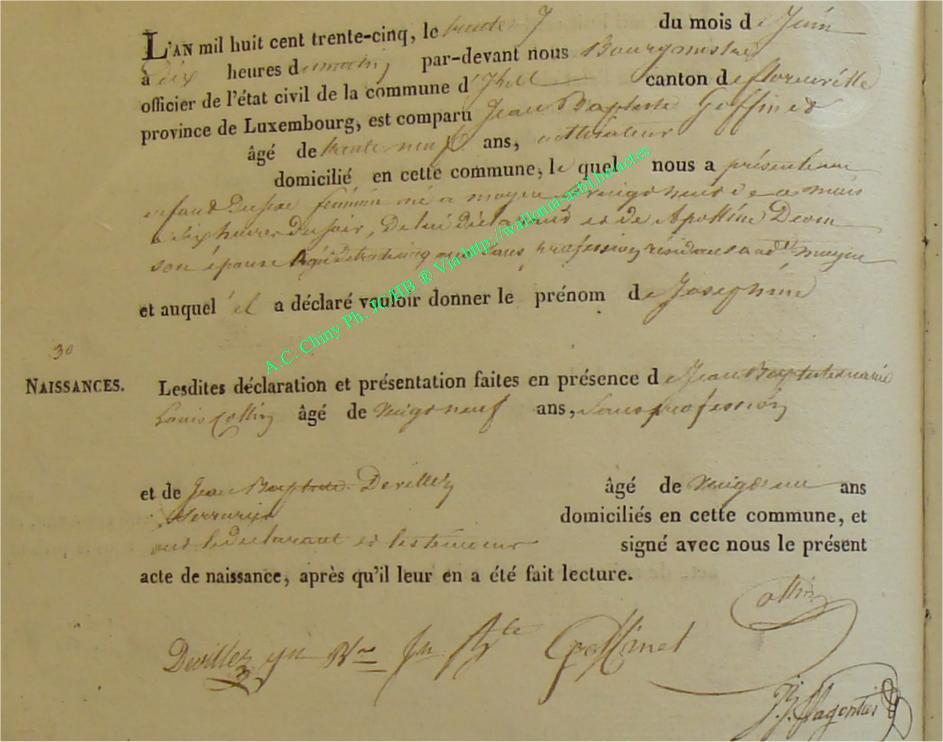 L'AN mil huit cent trente-cinq, le du mois de Juin
à dix heures du matin par-devant nous Bourgmestre
officier de l'état civil de la commune d' canton de florenville
province de Luxembourg, est comparu Jean Baptiste Goffinet
âgé de trente neuf ans, cultivateur
domicilié en cette commune, le quel nous a présenté un
enfant du sexe féminin né a moyen le vingt neuf de ce mois
a six heures du soir, De lui déclarant et de Apolline Devin
son épouse agée de trente cinq ans sans profession résidant audit moyen
et auquel il a déclaré vouloir donner le prénom de Josephine
30
NAISSANCES. Lesdites déclaration et présentation faites en présence de Jean Baptiste marie
Louis Collin âgé de vingt neuf ans, Sans profession
et de Jean Baptiste Devillez âgé de vingt un ans
Serrurier domiciliés en cette commune, et
ont le déclarant et les témoins signé avec nous le présent
acte de naissance, après qu'il leur en a été fait lecture.
Collin
Devillez Jn Bte Goffinet
A.C. Chiny Ph. Jc HB ® Via http://wallonia-asbl.be/actes